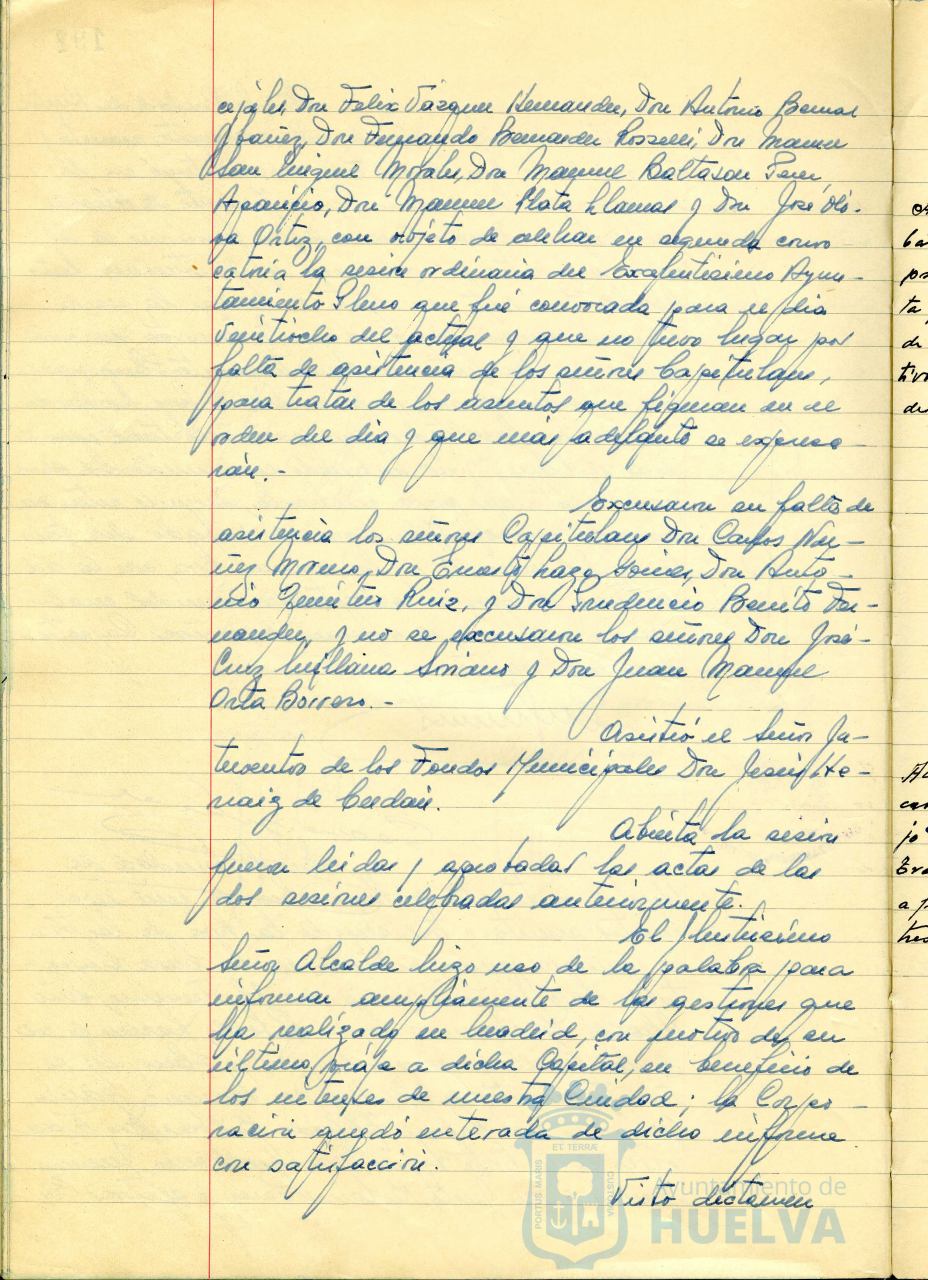 cejales, Don Felix Vázquez Hernandez, Don Antonio Bernal
Ybañez, Don Fernando Bernardez Rosselli, Don Manuel
San Miguel Morales, Don Manuel Baltasar
Aparicio, Don Manuel Plata Llamas y Don José Oli-
va Ortiz, con objeto de celebrar en segunda convo
catoria la sesion ordinaria del Excelentisimo Ayun-
tamiento Pleno que fué convocada para el dia
veintiocho del actual y que no tuvo lugar por
falta de asistencia de los señores Capitulares,
para tratar de los asuntos que figuran en el
orden del dia y que más adelante se expresa-
rán.-
Excusaron su falta de
asistencia los señores Capitulares Don Carlos Nu-
ñez Moreno, Don Ernesto Lazo Don Anto-
nio Ruiz, y Don Prudencio Benito Fer-
nandez, y no se excusaron los señores Don José-
Cruz Soriano y Don Juan Manuel
Orta Borrero.-
Asistió el Señor In-
terventor de los Fondos Municipales Don Jesús He-
naiz de
Abierta la sesion
fueron leidas y aprobadas las actas de las
dos sesiones celebradas anteriormente.
El Ilustrisimo
Señor Alcalde hizo uso de la palabra para
informar ampliamente de las gestiones que
ha realizado en Madrid, con motivo de su
último viaje a dicha Capital, en beneficio de
los intereses de nuestra Ciudad; la Corpo-
ración quedó enterada de dicho informe
con satisfacción.
Visto dictamen
ba
ta
de
tivo
de
jo
a p
tres
PORTUS MARIS
ET TERRÆ
CUSTODIA
Ayuntamiento de
HUELVA